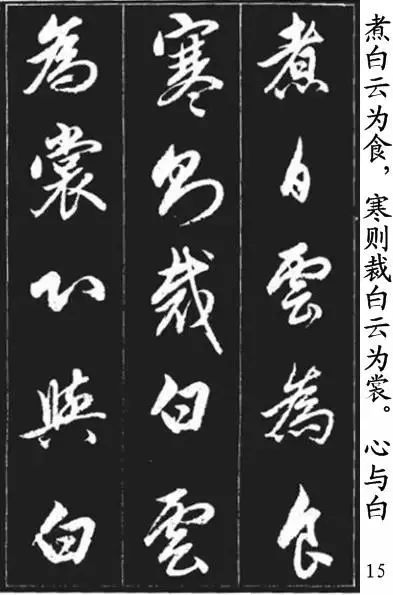 煮白雲為食
寒則裁白雲
為裳心與白
煮白云为食，寒则裁白云为裳。心与白
15